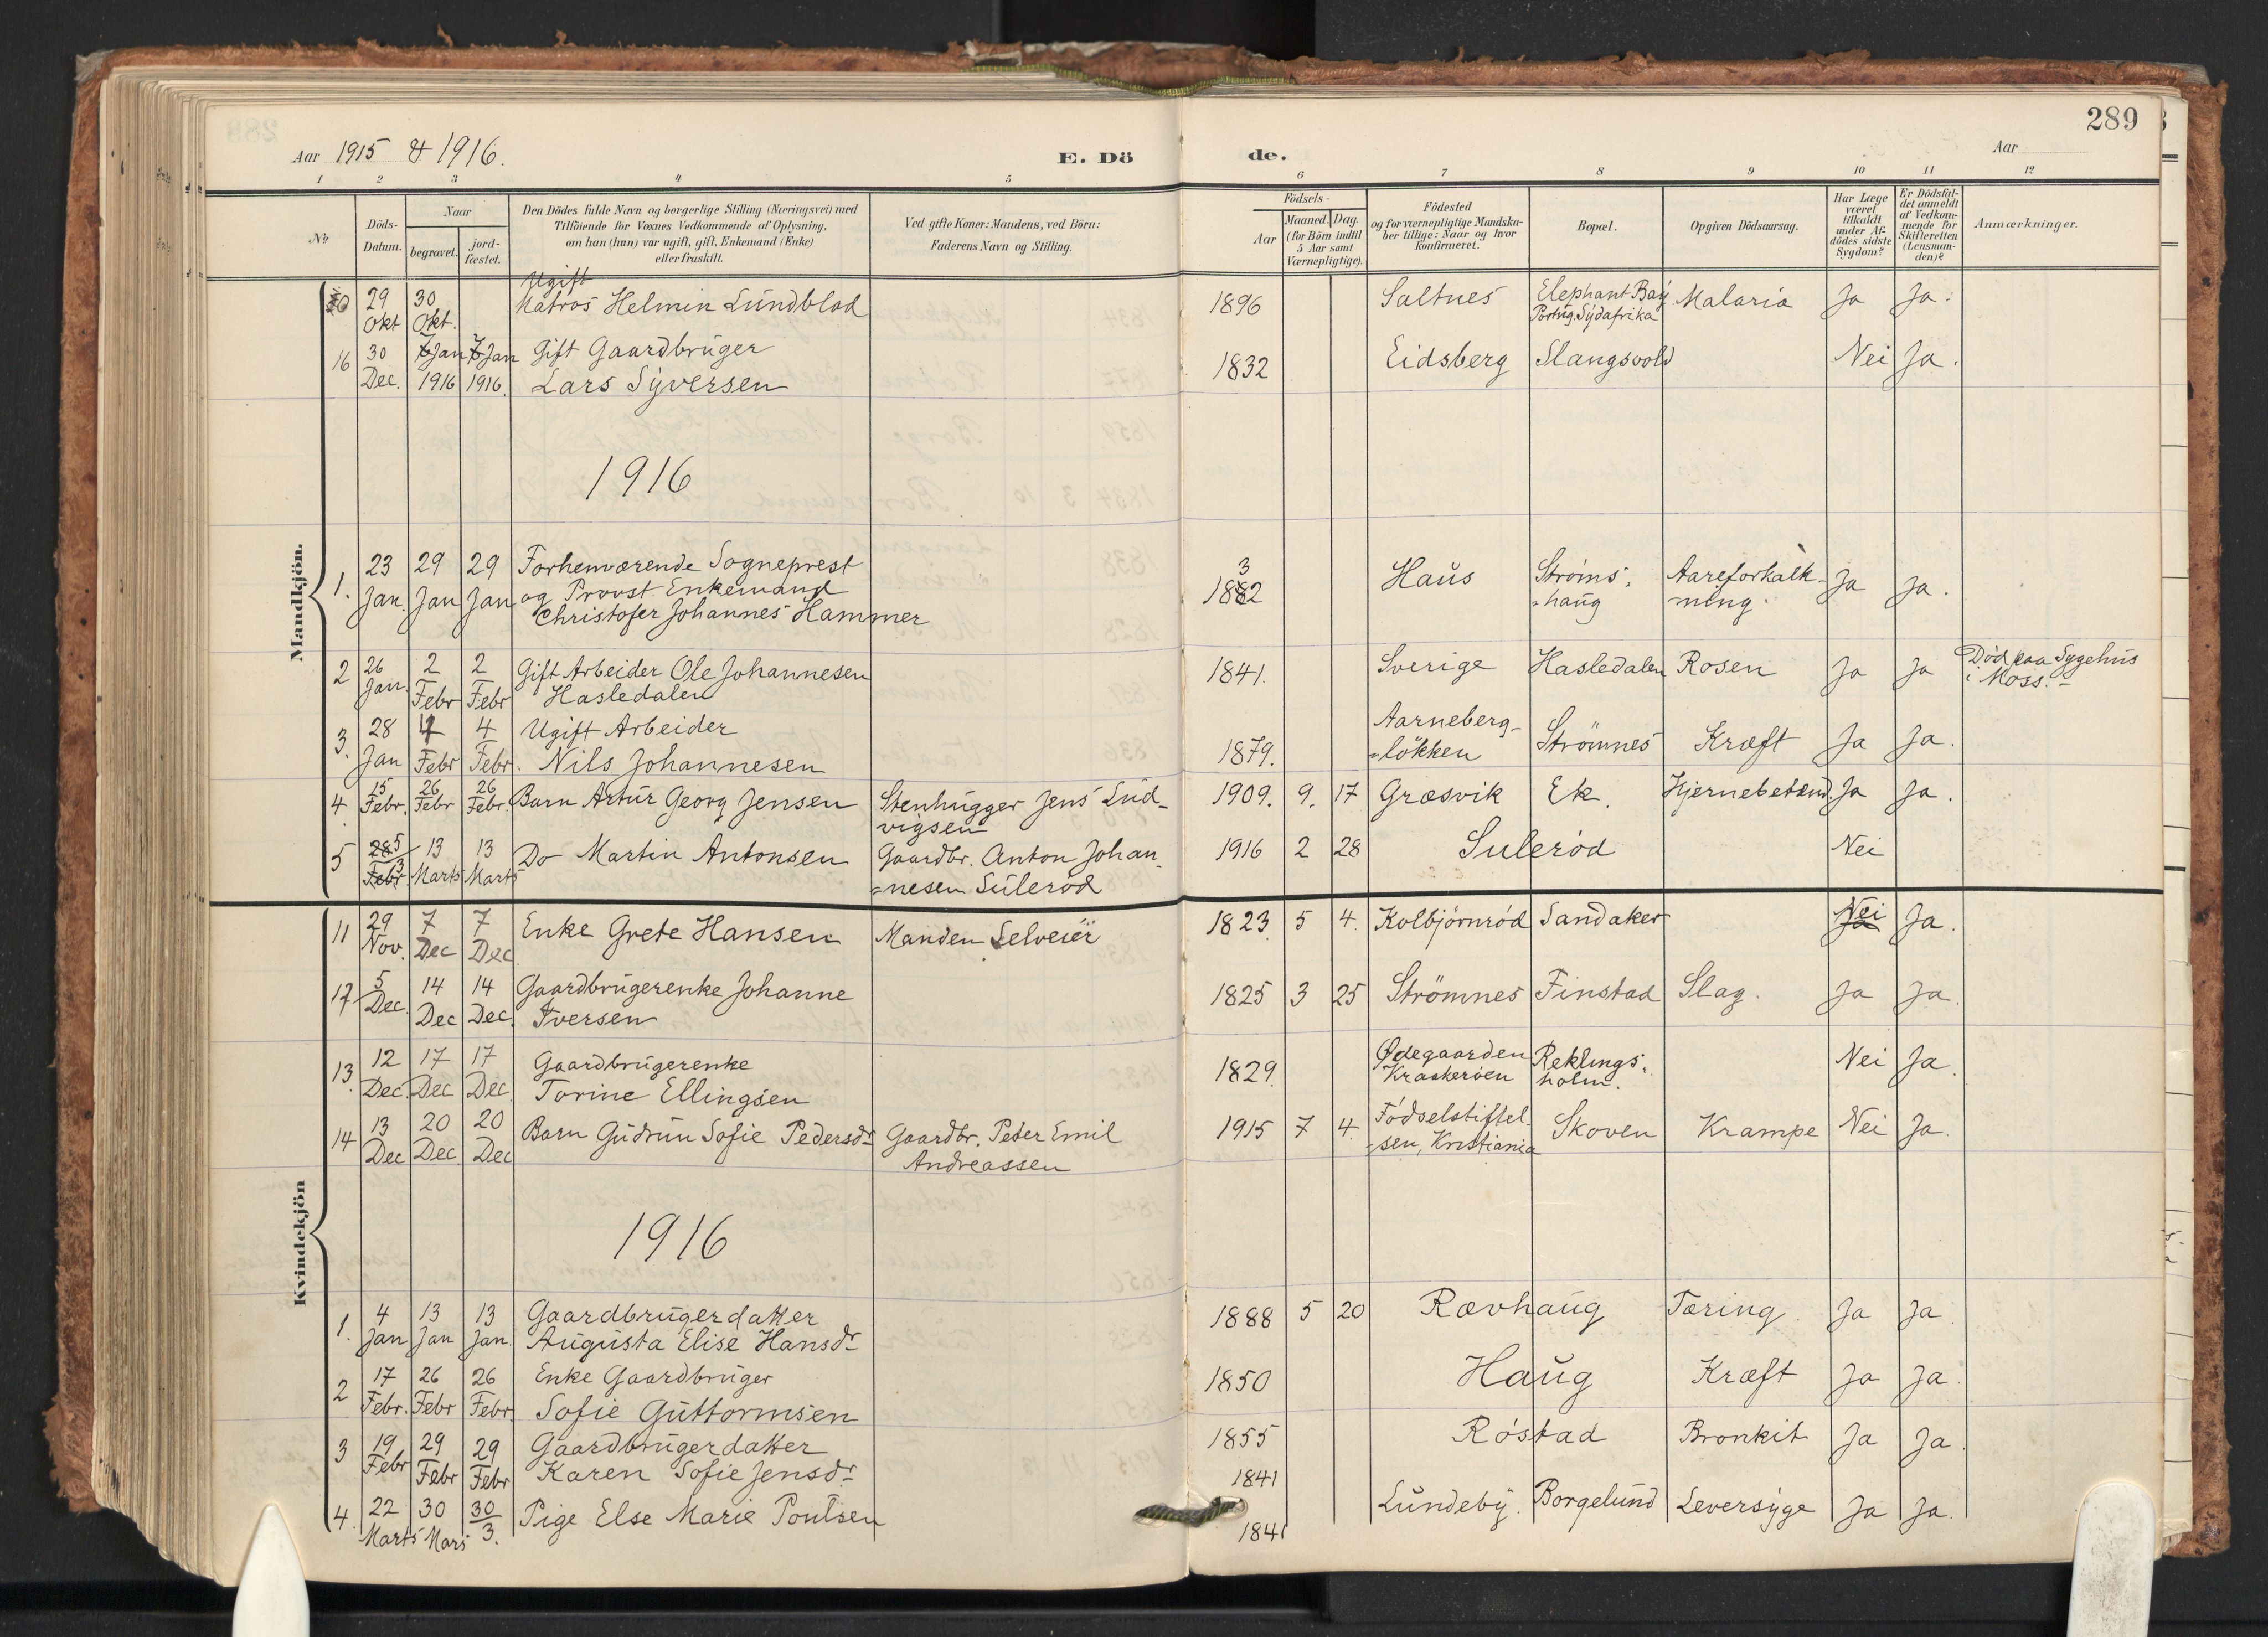 289
Aar 1915 & 1916.
E. Dö
de.
Aar
1 2 3 4 5 6 7 8 9 10 11 12
No
Döds-
Datum.
Naar
begravet.
jord-
fæstet.
Den Dödes fulde Navn og borgerlige Stilling (Næringsvei) med
Tilföiende for Voxnes Vedkommende af Oplysning,
om han (hun) var ugift, gift, Enkemand (Enke)
eller fraskilt.
Ved gifte Koner: Mandens, ved Börn:
Faderens Navn og Stilling.
Födsels-
Aar
Maaned. Dag.
(for Börn indtil
5 Aar samt
Værnepligtige).
Födested
og for værnepligtige Mandska-
ber tillige: Naar og hvor
konfirmeret.
Bopæl.
Opgiven Dödsaarsag.
Har Læge
været
tilkaldt
under Af-
dödes sidste
Sygdom?
Er Dödsfal-
det anmeldt
af Vedkom-
mende for
Skifteretten
(Lensman-
den)?
Anmærkninger.
Mandkjön.
29 Okt 30 Okt. Ugift
Matros Helmin Lundblad 1896 Saltnes Elephant Bay
Portug. Sydafrika Malaria Ja Ja.
16 30 Dec. Jan 1916 Jan 1916. Gift Gaardbruger
Lars Syversen 1832 Eidsberg Slangsvold Nei Ja.
1916
1. 23 Jan. 29 Jan 29 Jan Forhenværende Sogneprest
og Provst Enkemand
Christofer Johannes Hammer 1882 3 Haus Ströms-
=haug Aareforkalk-
=ning. Ja Ja.
2 26 Jan. 2 Febr 2 Febr Gift Arbeider Ole Johannesen
Hasledalen 1841. Sverige Hasledalen Rosen Ja Ja Död paa Sygehus
i Moss.-
3. 28 Jan 4 Febr 4 Febr. Ugift Arbeider
Nils Johannesen 1879. Aarneberg-
=lökken Strömnes Kræft Ja Ja.
4. 15 Febr. 26 Febr 26 Febr. Barn Artur Georg Jensen Stenhugger Jens Lud-
vigsen 1909. 9. 17 Græsvik Ek. Hjernebetænd. Ja Ja.
5 28 Febr. 5 3 13 Marts 13 Marts Do Martin Antonsen Gaardbr. Anton Johan-
=nesen Suleröd 1916 2 28 Suleröd Nei
Kvindekjön
11 29 Nov. 7 Dec 7 Dec Enke Grete Hansen Manden Selveier 1823. 5 4. Kolbjörnröd Sandaker Nei Ja Ja.
12 5 Dec. 14 Dec 14 Dec. Gaardbrugerenke Johanne
Iversen 1825 3 25 Strömnes Finstad Slag. Ja Ja.
13. 12 Dec. 17 Dec 17 Dec Gaardbrugerenke
Torine Ellingsen 1829. Ødegaarden
Kraakeröen Reklings-
holm. Nei Ja.
14 13 Dec 20 Dec. 20 Dec Barn Gudrun Sofie Pedersdr Gaardbr. Peter Emil
Andreassen 1915 7 4. Födselstiftel-
=sen, Kristiania Skoven Krampe Nei Ja.
1916
1. 4 Jan 13 Jan 13 Jan. Gaardbrugerdatter
Augusta Elise Hansdr 1888 5 20 Rævhaug Tæring. Ja Ja
2 17 Febr. 26 Febr 26 Febr. Enke Gaardbruger
Sofie Guttormsen 1850 Haug Kræft Ja Ja.
3 19 Febr 29 Febr 29 Febr Gaardbrugerdatter
Karen Sofie Jensdr 1855 Röstad Bronkit Ja Ja.
4. 22 Marts 30 Mars 30/3. Pige Else Marie Poulsen 1841 1841 Lundeby. Borgelund Leversyge Ja Ja.